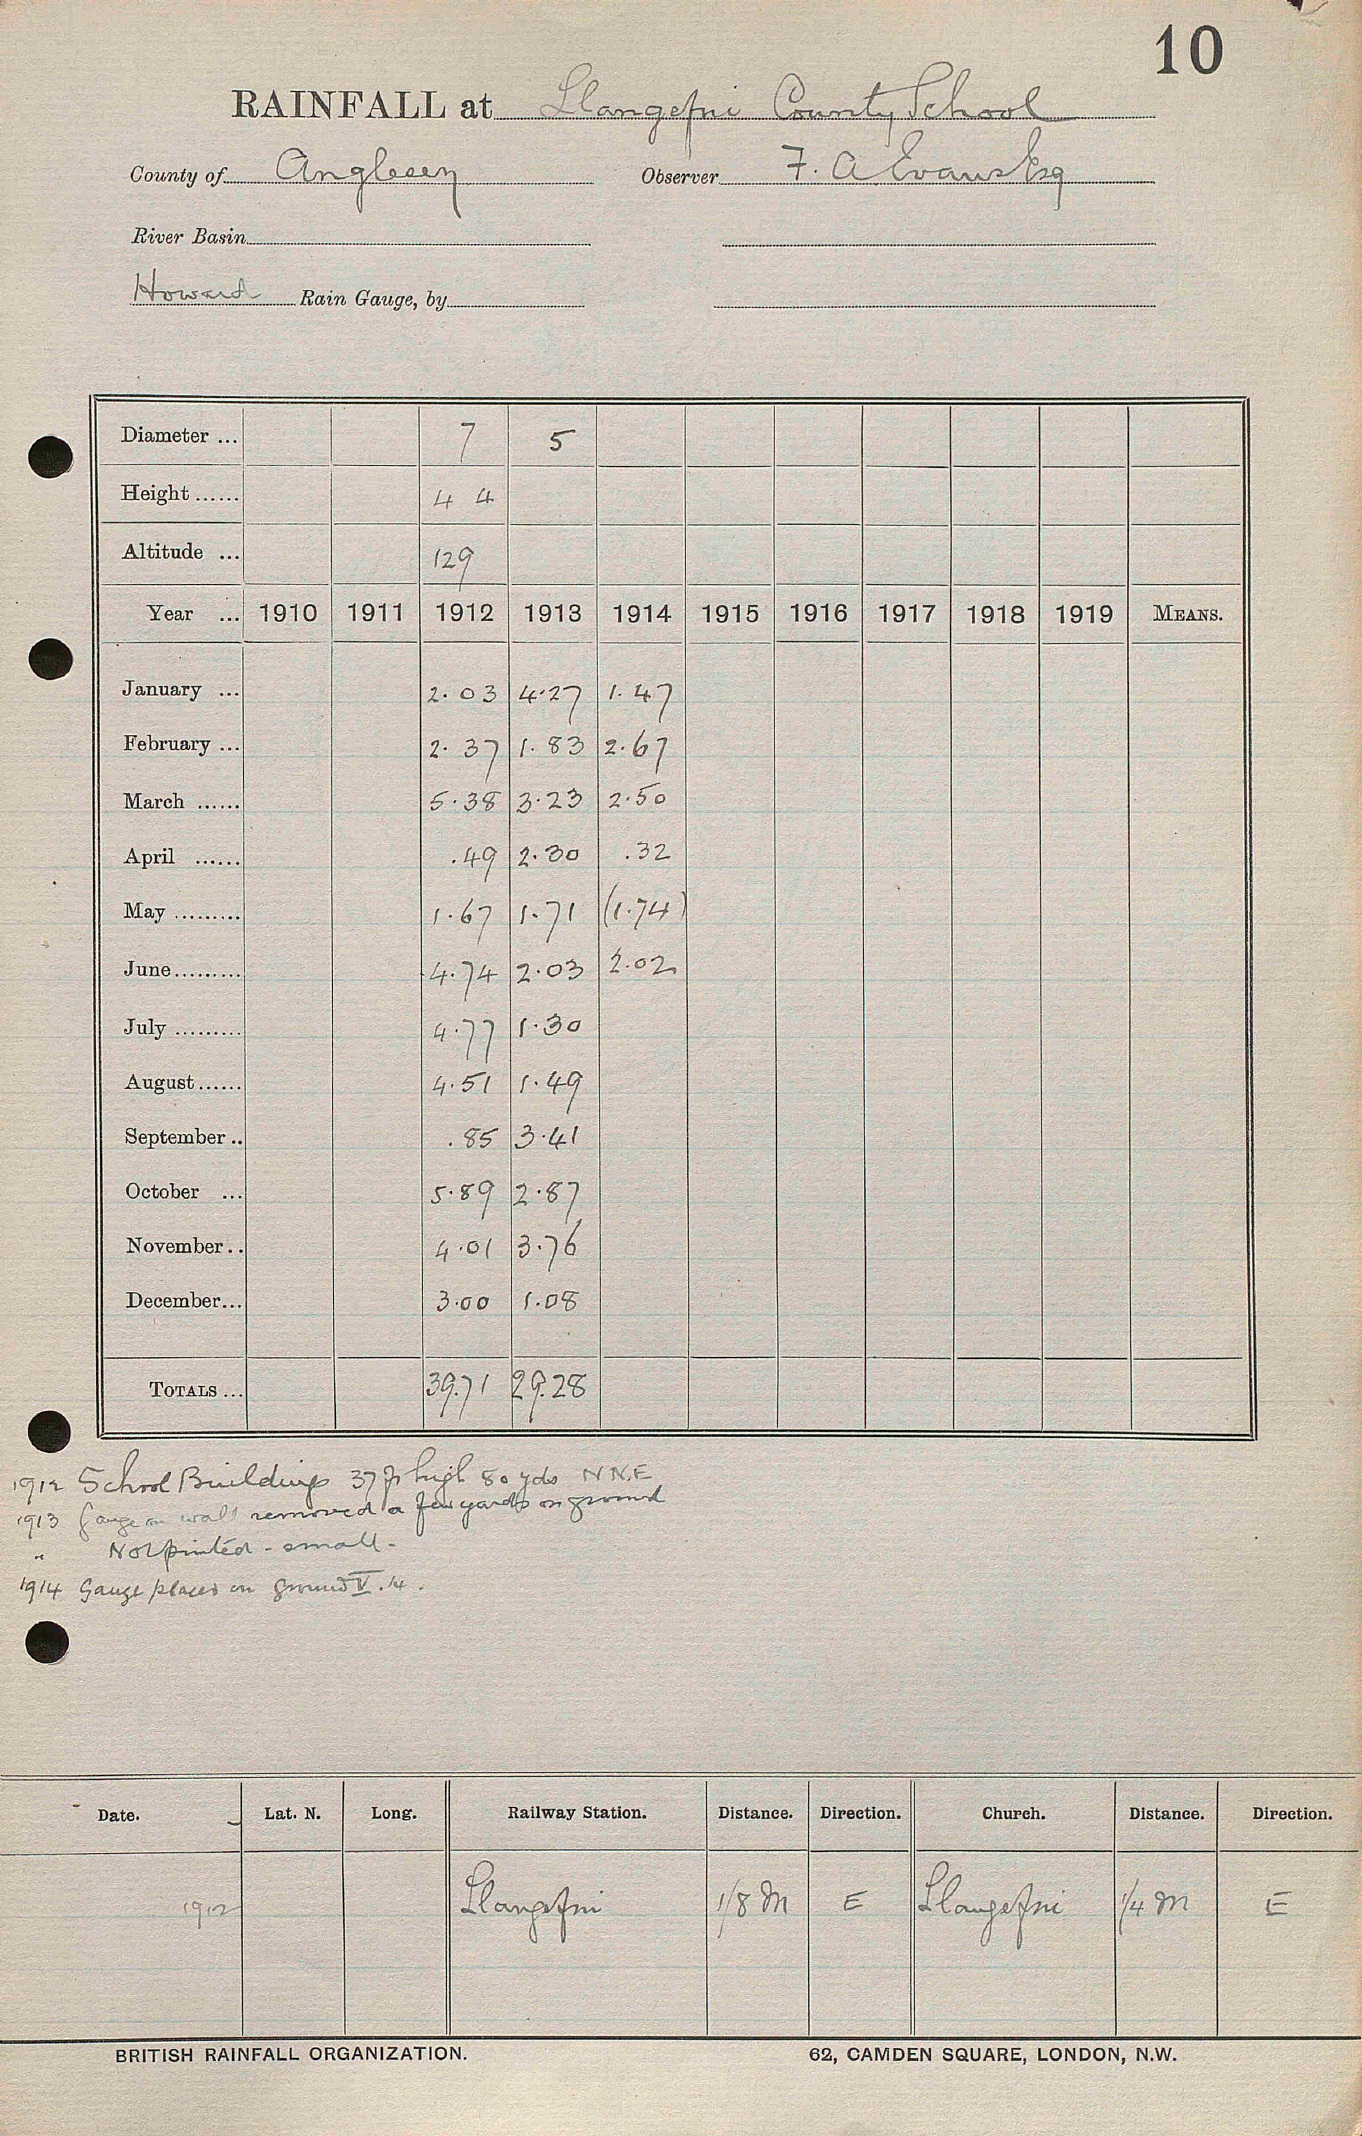 10
RAINFALL at Llangefni County School
County of Anglesey Observer F. A Evans Esq
River Basin
Howard Rain Gauge, by
Diameter ... 7 5
Height ...... 4 4
Altitude ... 129
Year ... 1910 1911 1912 1913 1914 1915 1916 1917 1918 1919 MEANS.
January ... 2.03 4.27 1.47
February ... 2.37 1.83 2.67
March ...... 5.38 3.23 2.50
April ...... .49 2.30 .32
May ......... 1.67 1.71 (1.74)
June ......... 4.74 2.03 2.02
July ......... 4.77 1.30
August ...... 4.51 1.49
September .. .85 3.41
October ... 5.89 2.87
November .. 4.01 3.76
December ... 3.00 1.08
TOTALS ... 39.71 29.28
1912 School Buildings 37 ft high 80 yds N N.E
1913 Gauge on wall removed a few yards on ground
" Not printed - small -
1914 Gauge placed on ground V. 14.
Date. Lat. N. Long. Railway Station. Distance. Direction. Church. Distance. Direction.
1912 Llangefni 1/8 M E Llangefni 1/4 M E
BRITISH RAINFALL ORGANIZATION. 62, CAMDEN SQUARE, LONDON, N.W.